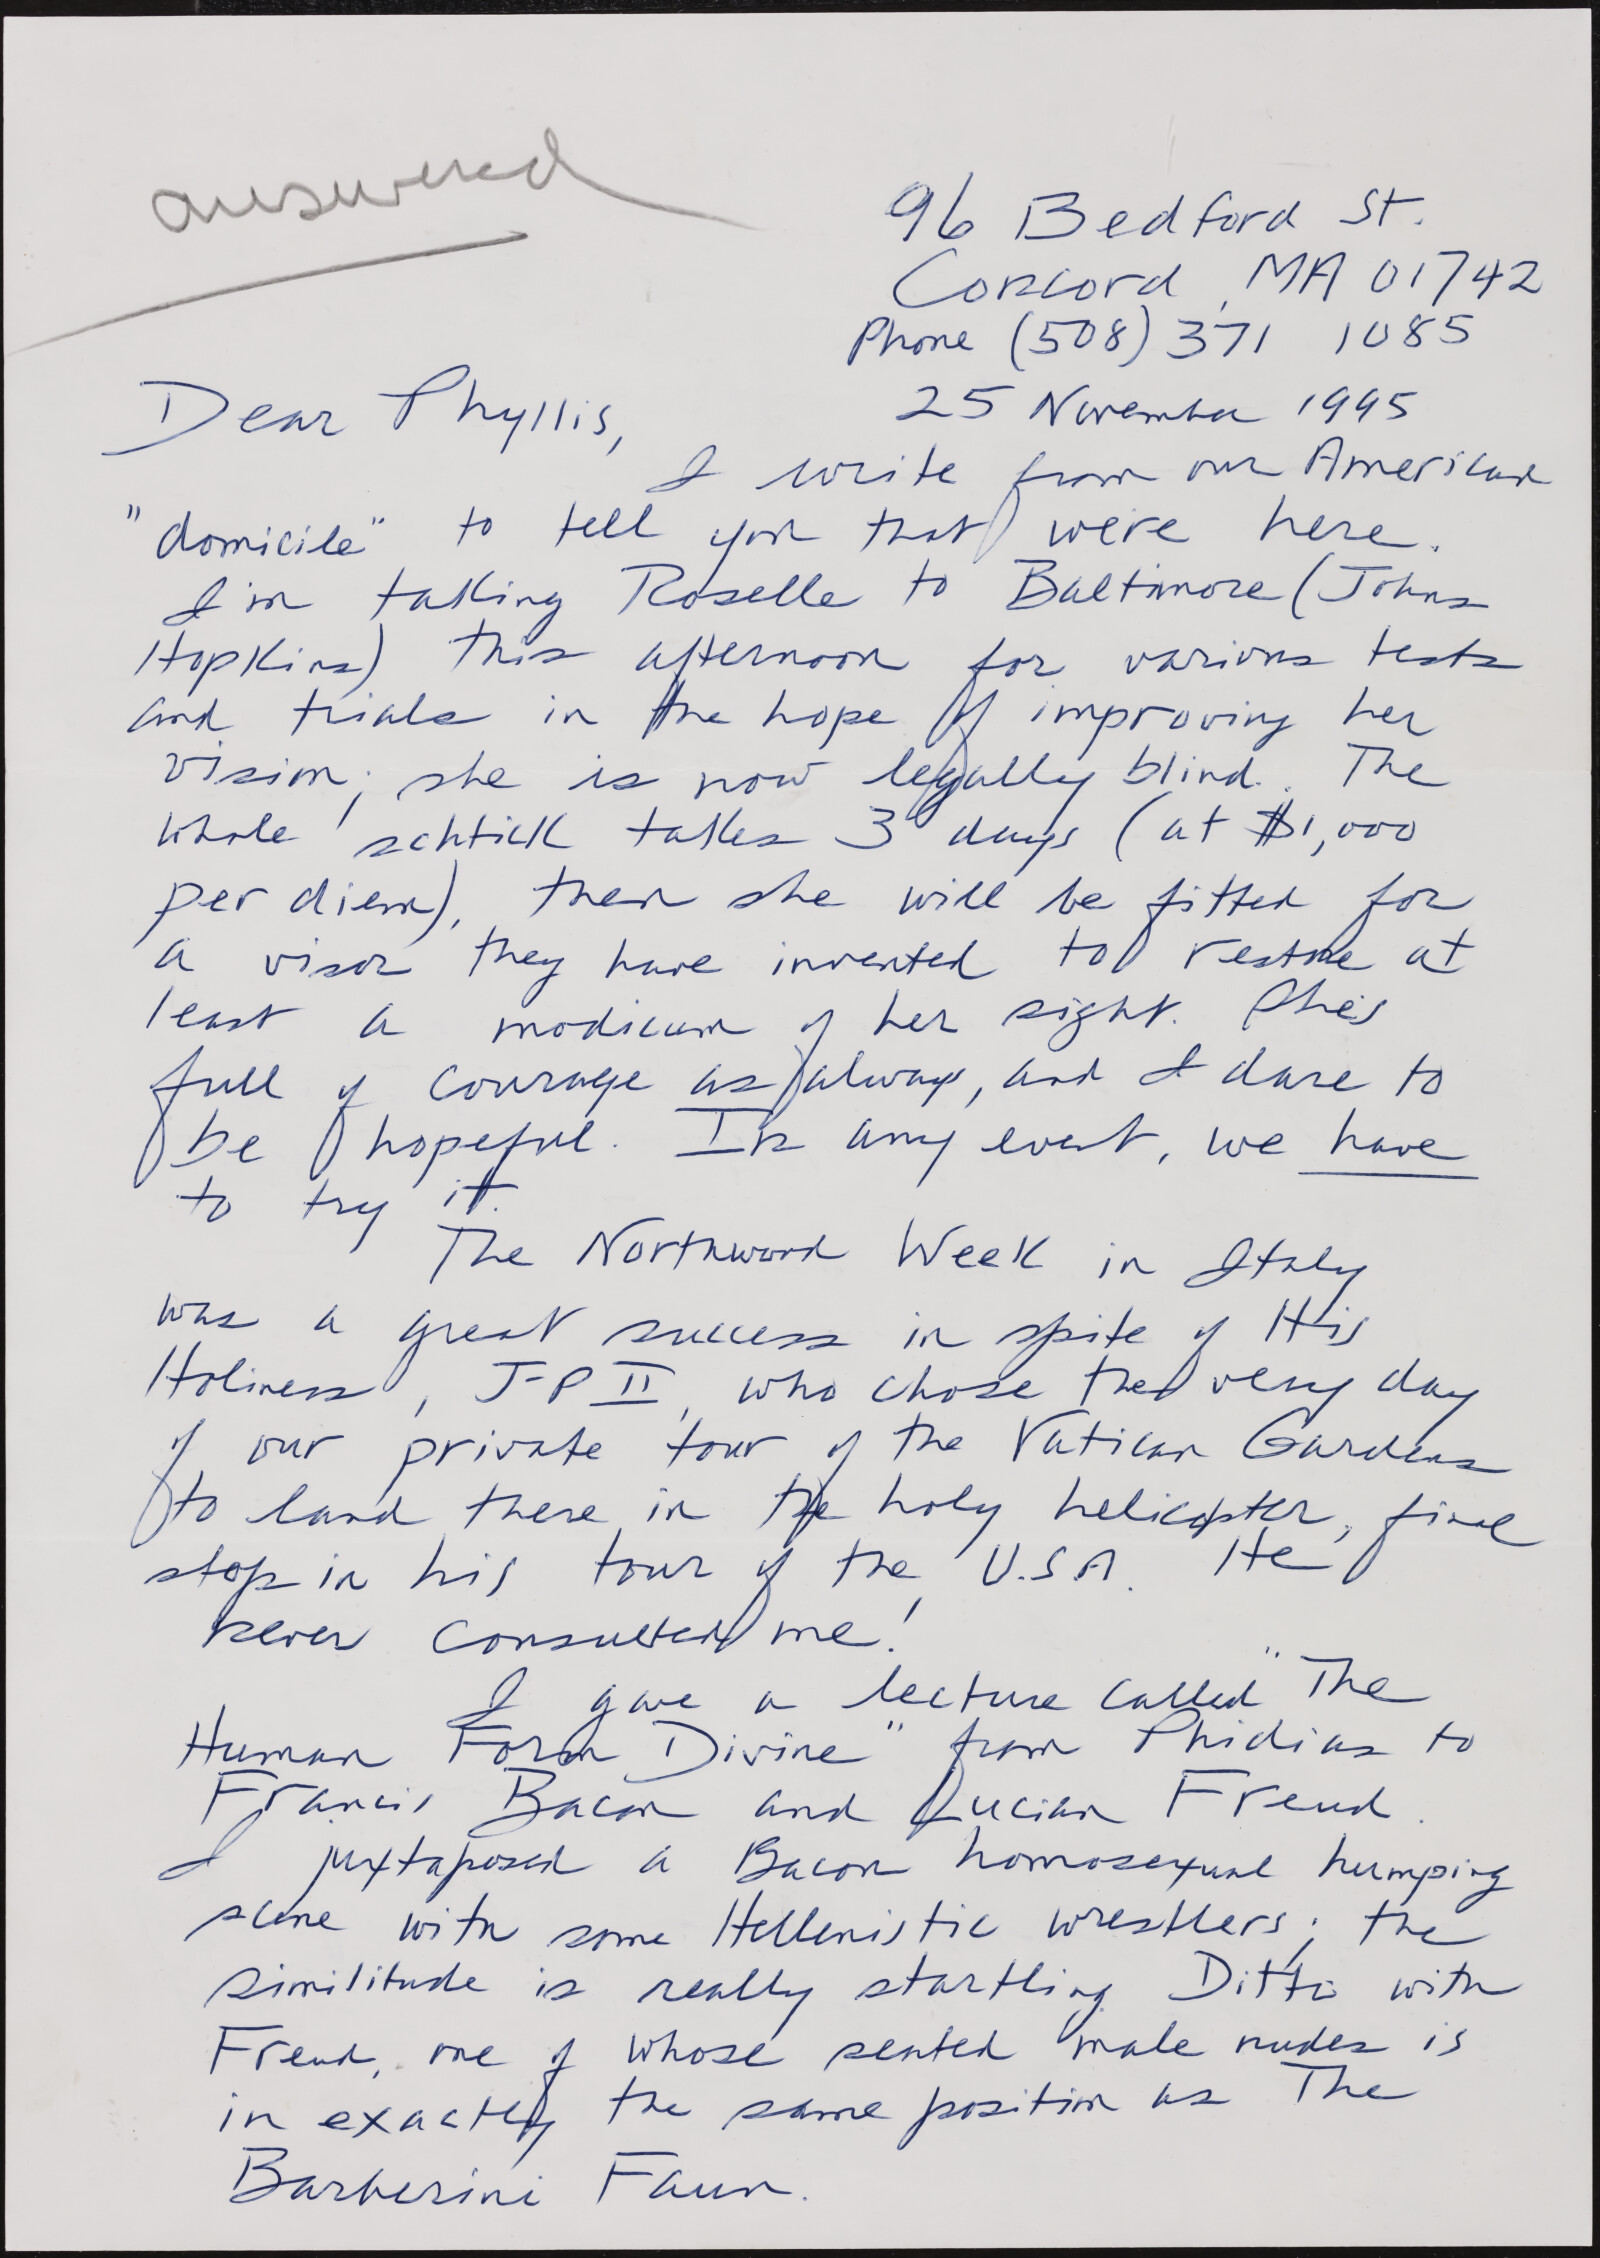 answered
96 Bedford St.
Concord, MA 01742
Phone (508) 371 1085
25 November 1995
Dear Phyllis,
I write from our American
"domicile" to tell you that we're here.
I'm taking Roselle to Baltimore (Johns
Hopkins) this afternoon for various tests
and trials in the hope of improving her
vision; she is now legally blind. The
whole schtick takes 3 days (at $1,000
per diem), then she will be fitted for
a visor they have invented to restore at
least a modicum of her sight. She's
full of courage as always, and I dare to
be hopeful. In any event, we have
to try it.
The Northword Week in Italy
was a great success in spite of His
Holiness, J-P II, who chose the very day
of our private tour of the Vatican Gardens
to land there in the holy helicopter, final
stop in his tour of the U.S.A. He
never consulted me!
I gave a lecture called "The
Human Form Divine" from Phidias to
Francis Bacon and Lucian Freud.
I juxtaposed a Bacon homosexual humping
scene with some Hellenistic wrestlers; the
similitude is really startling. Ditto with
Freud, one of whose seated male nudes is
in exactly the same position as The
Barberini Faun.